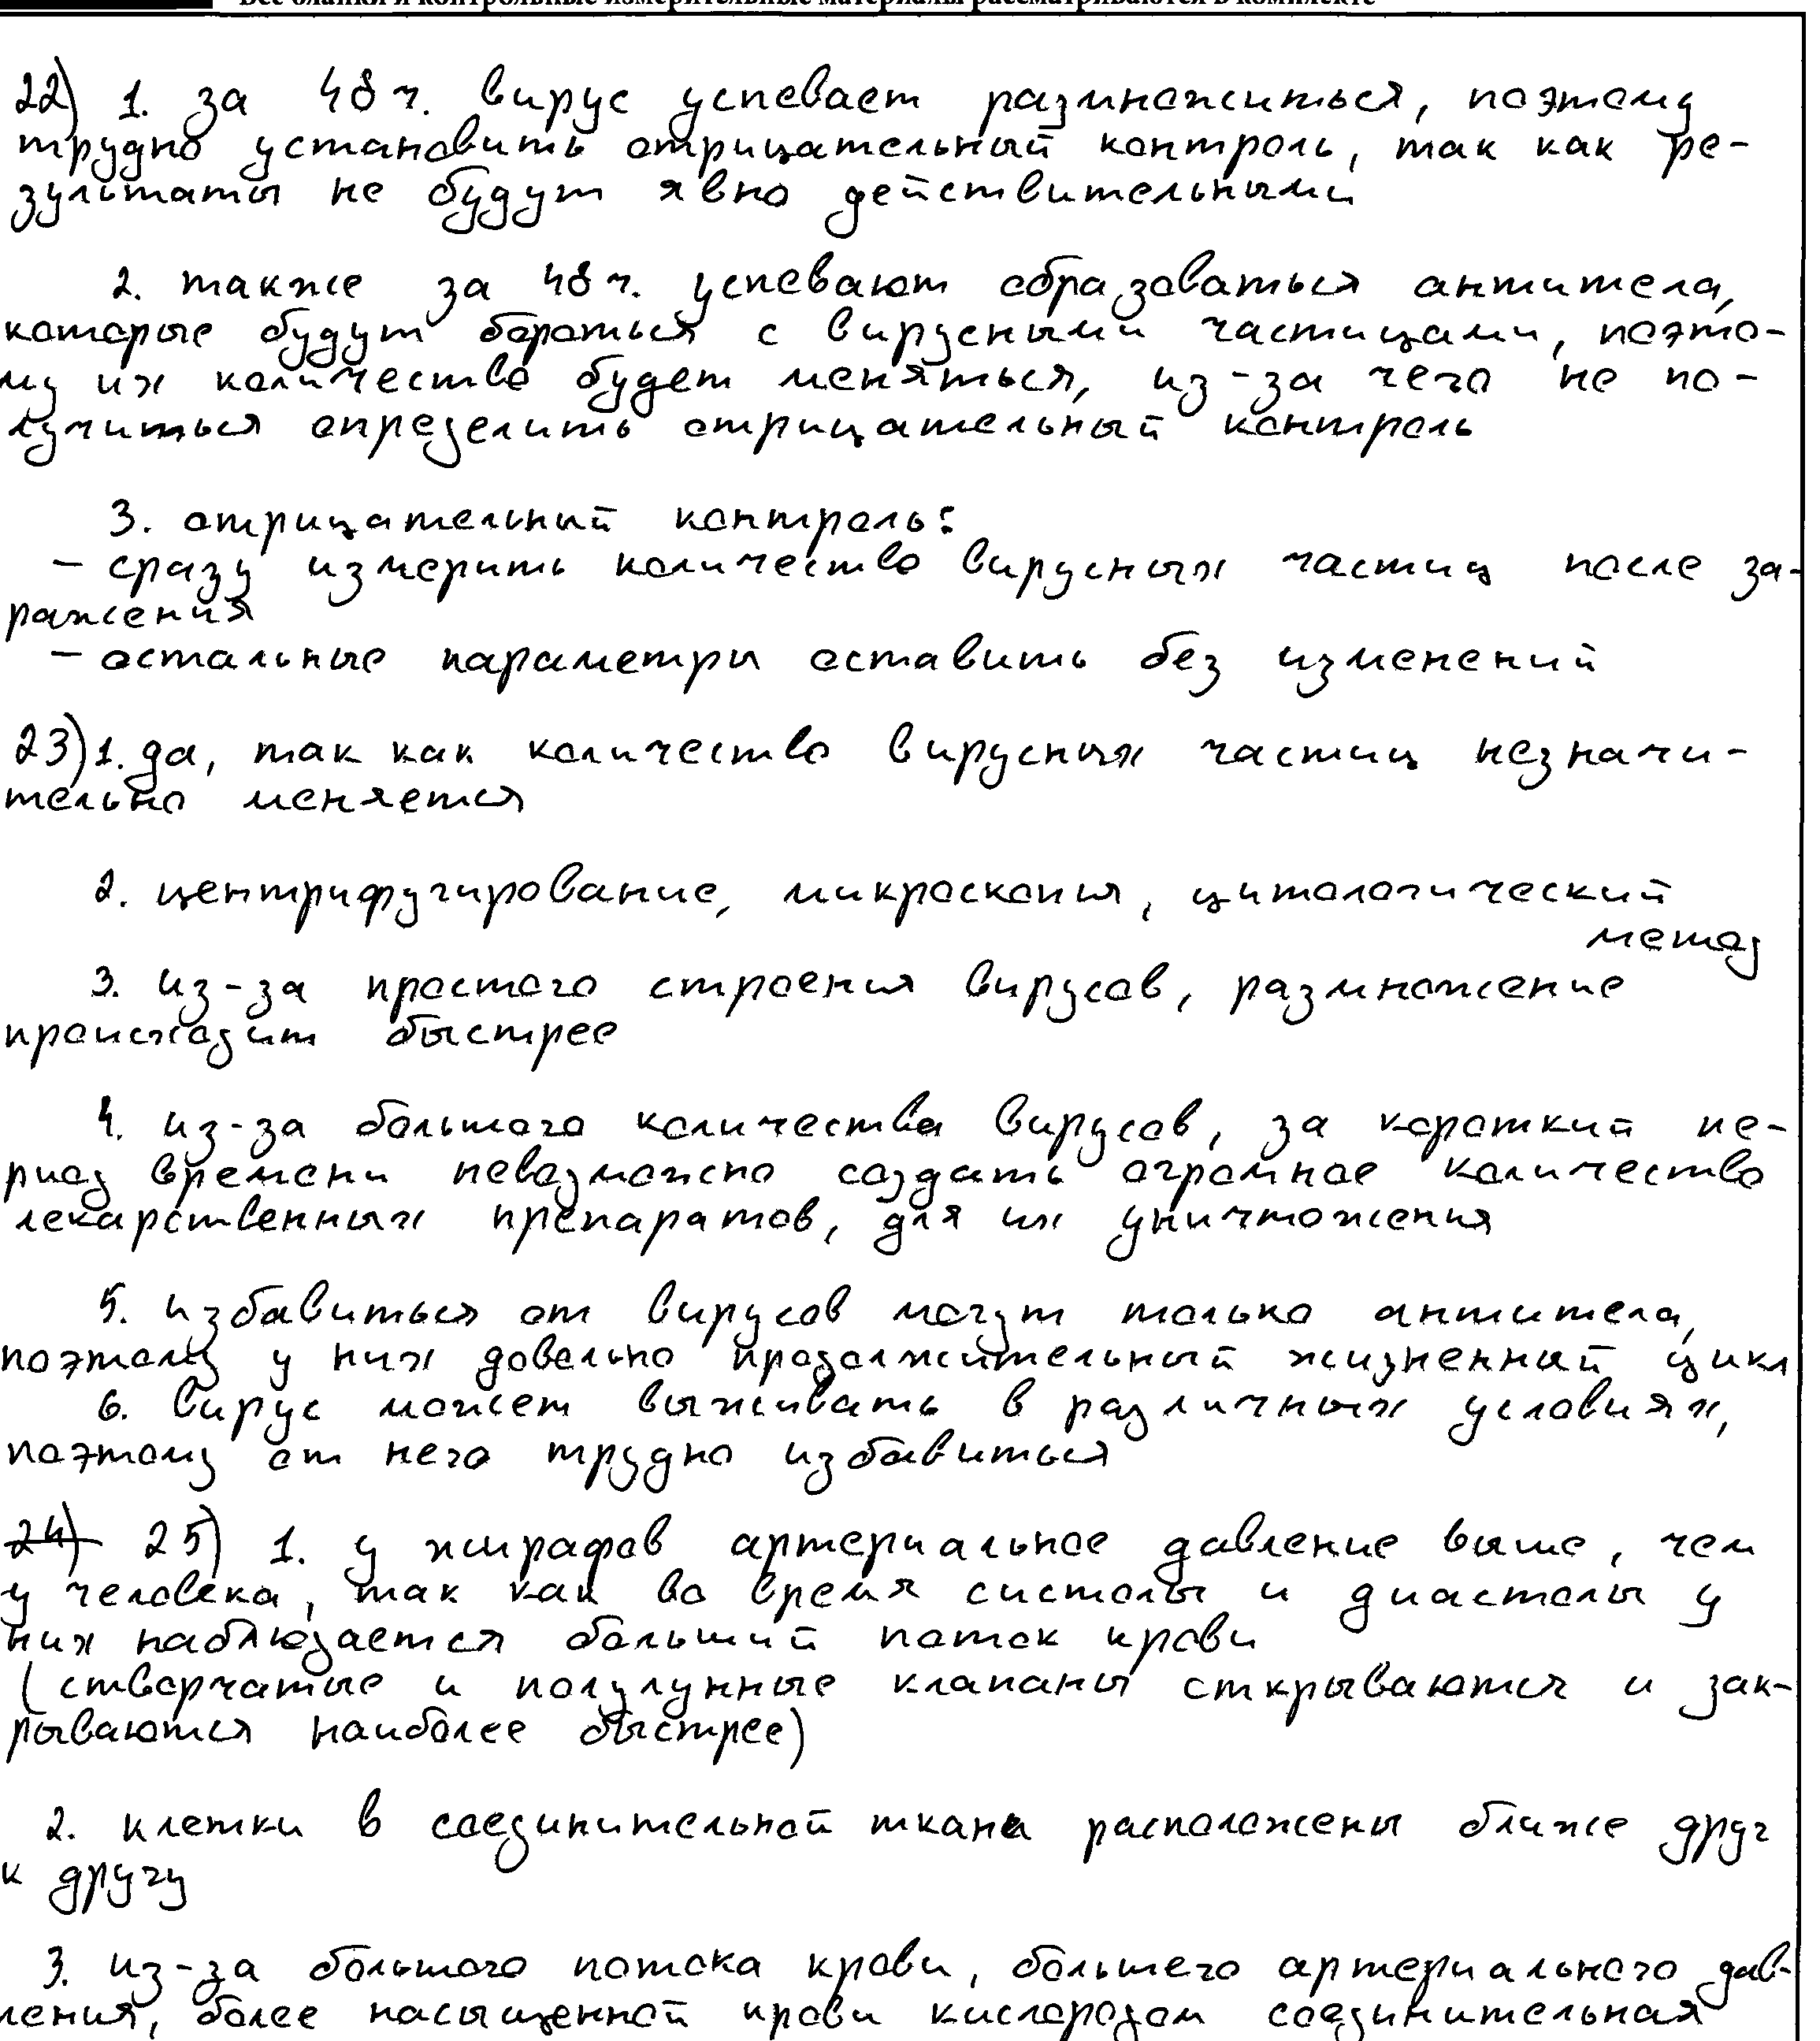 Все бланки и контрольные измерительные материалы рассматриваются в комплекте
22) 1. за 48 ч. вирус успевает размножиться, поэтому
трудно установить отрицательный контроль, так как ре-
зультаты не будут явно действительными
2. также за 48 ч. успевают образоваться антитела,
которые будут бороться с вирусными частицами, поэто-
му их количество будет меняться, из-за чего не по-
лучиться определить отрицательный контроль
3. отрицательный контроль:
- сразу измерить количество вирусных частиц после за-
ражения
- остальные параметры оставить без изменений
23) 1. да, так как количество вирусных частиц незначи-
тельно меняется
2. центрифугирование, микроскопия, цитологический
метод
3. из-за простого строения вирусов, размножение
происходит быстрее
4. из-за большого количества вирусов, за короткий пе-
риод времени невозможно создать огромное количество
лекарственных препаратов, для их уничтожения
5. избавиться от вирусов могут только антитела,
поэтому у них довольно продолжительный жизненный цикл
6. вирус может выживать в различных условиях,
поэтому от него трудно избавиться
24) 25) 1. у жирафов артериальное давление выше, чем
у человека, так как во время систолы и диастолы у
них наблюдается больший поток крови
(створчатые и полулунные клапаны открываются и зак-
рываются наиболее быстрее)
2. клетки в соединительной ткани расположены ближе друг
к другу
3. из-за большого потока крови, большего артериального дав-
ления, более насыщенной крови кислородом соединительная